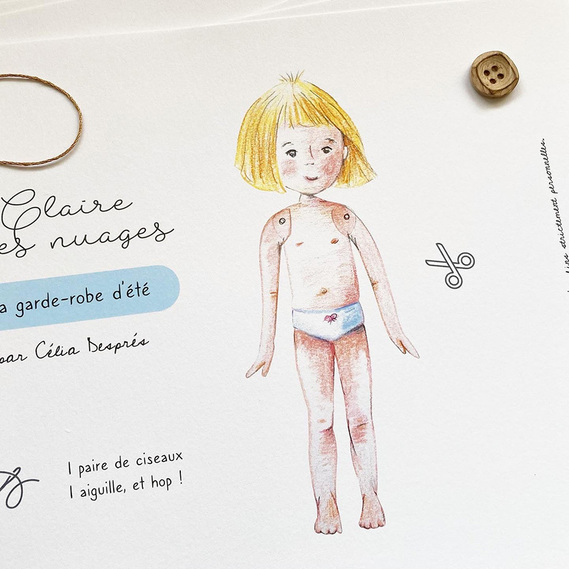 Claire
es nuages
a garde-robe d'été
par Célia Després
1 paire de ciseaux
1 aiguille, et hop !
strictement personnelles.